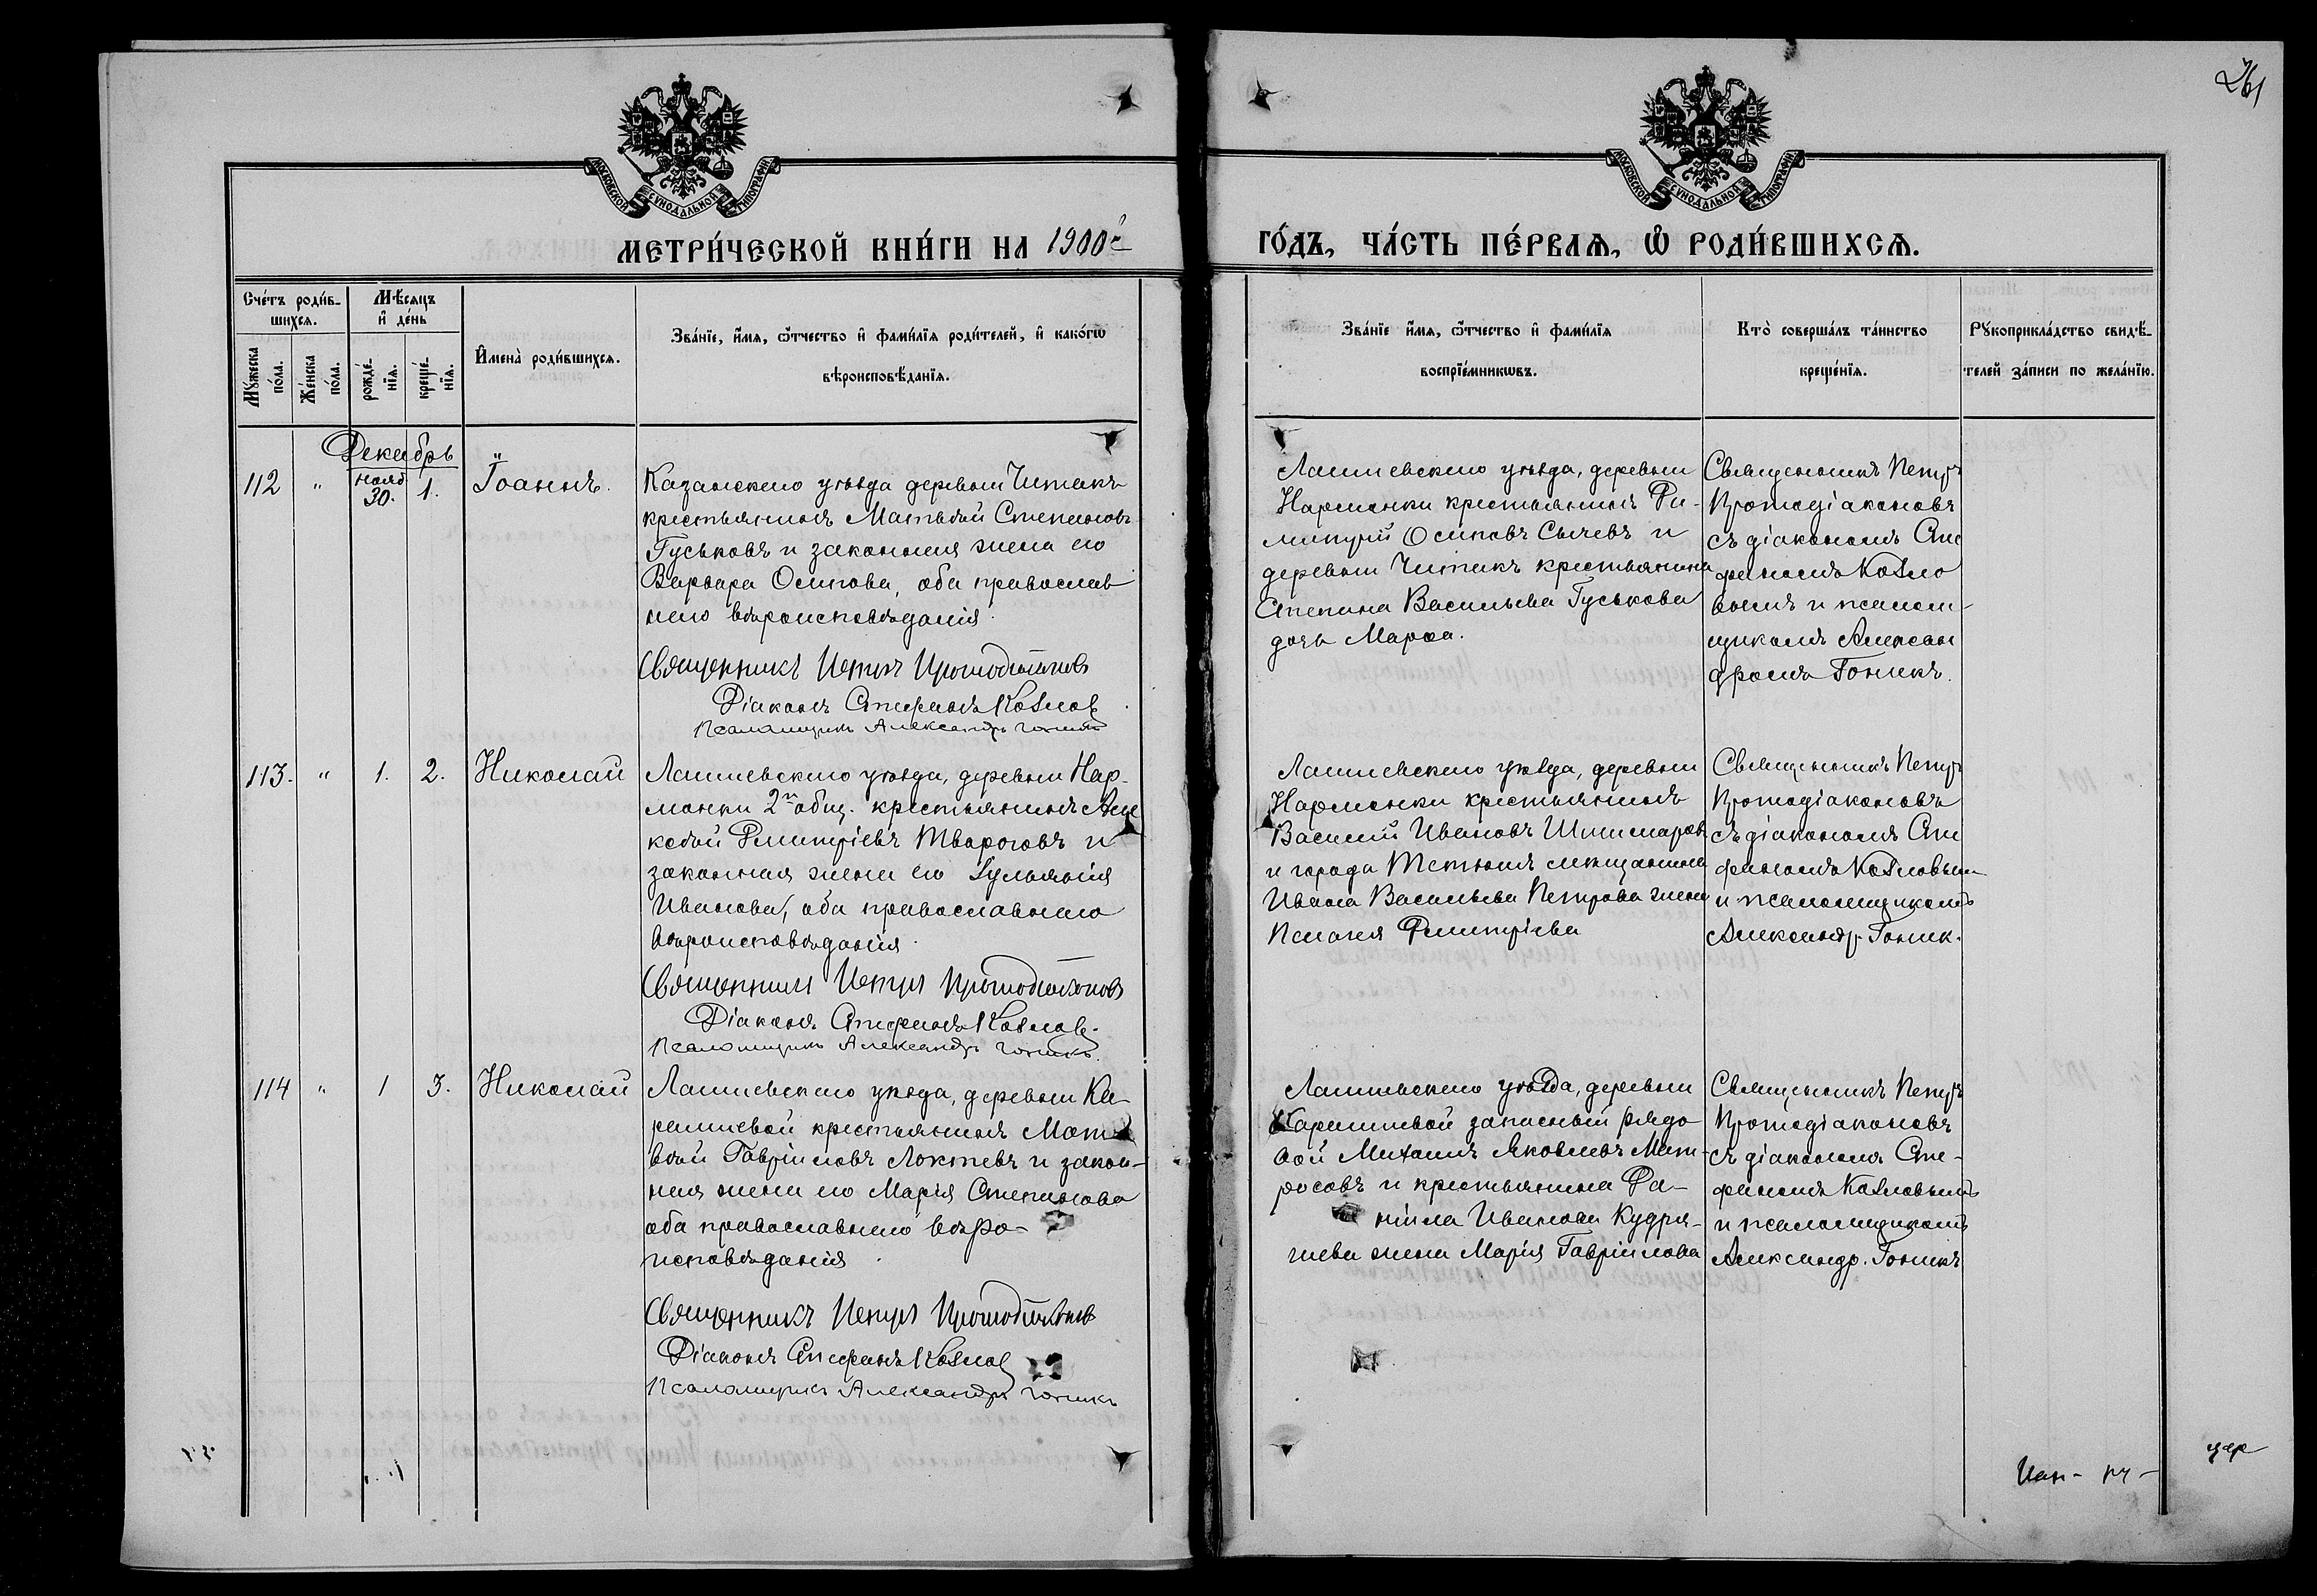 261
МОСКОВСКОЙ СУНОДАЛЬНОЙ ТИПОГРАФІИ
МОСКОВСКОЙ СУНОДАЛЬНОЙ ТИПОГРАФІИ
МЕТРИ́ЧЕСКОЙ КНИ́ГИ НА 1900й
ГО́ДЪ, ЧА́СТЬ ПЕ́РВАѦ, Ѡ҆ РОДИ́ВШИХСѦ.
Сче́тъ роди́в-
шихсѧ.
Мѣ́сѧцъ
и҆ де́нь
Мꙋ́жеска
по́ла.
Же́нска
по́ла.
рожде́-
нїѧ.
креще́-
нїѧ.
И҆мена̀ роди́вшихсѧ.
Зва́нїе, и҆́мѧ, ѻ҆́тчество и҆ фами́лїѧ роди́телей, и҆ како́гѡ
вѣроисповѣ́данїѧ.
Зва́нїе и҆́мѧ, ѻ҆́тчество и҆ фами́лїѧ
воспрїе́мникѡвъ.
Кто̀ соверша́лъ та́инство
креще́нїѧ.
Рꙋкоприкла́дство свидѣ́-
телей за́писи по жела́нїю.
Декабрь
112 " нояб 30. 1. Іоаннъ.
Казанскаго уѣзда деревни Читакъ
крестьянинъ Матвѣй Степановъ
Гуськовъ и законная жена его
Варвара Осипова, оба православ
наго вѣроисповѣданія.
Священникъ Петръ Протодіаконовъ
Діаконъ Стефанъ Козлов
Псаломщикъ Александръ Гоникъ
Лаишевскаго уѣзда, деревни
Нармонки крестьянинъ Ди-
митрій Осиповъ Сычевъ и
деревни Читакъ крестьянина
Степана Васильева Гуськова
дочь Марѳа.
Священникъ Петръ
Протодіаконовъ
съ діакономъ Сте
фаномъ Козло
вымъ и псалом-
щикомъ Алексан
дромъ Гоникъ.
113. " 1. 2. Николай
Лаишевскаго уѣзда, деревни Нар-
монки 2го общ. крестьянинъ Але
ксѣй Димитріевъ Твороговъ и
законная жена его Іуліанія
Иванова, оба православнаго
вѣроисповѣданія.
Священникъ Петръ Протодіаконовъ
Діаконъ Стефанъ Козлов.
Псаломщикъ Александръ Гоникъ.
Лаишевскаго уѣзда, деревни
Нармонки крестьянинъ
Василій Ивановъ
и города Тетюшъ мѣщанина
Ивана Васильева Петрова жена
Пелагея Димитріева
Священникъ Петръ
Протодіаконовъ
съ діакономъ Сте
фаномъ Козловымъ
и псаломщикомъ
Александр. Гоник.
114 " 1 3. Николай
Лаишевскаго уѣзда, деревни Ка-
раишевой крестьянинъ Мат
вѣй Гавріиловъ Локтевъ и закон-
ная жена его Марія Степанова
оба православнаго вѣро-
исповѣданія
Священникъ Петръ Протодіаконовъ
Діаконъ Стефанъ Козлов
Псаломщикъ Александръ Гоникъ
Лаишевскаго уѣзда, деревни
Караишевой запасный рядо
вой Михаилъ Яковлевъ Мат-
росовъ и крестьянина Да-
ніила Иванова Кудря-
шева жена Марія Гавріилова
Священникъ Петръ
Протодіаконовъ
съ діакономъ Сте-
фаномъ Козловымъ
и псаломщикомъ
Александр. Гоникъ